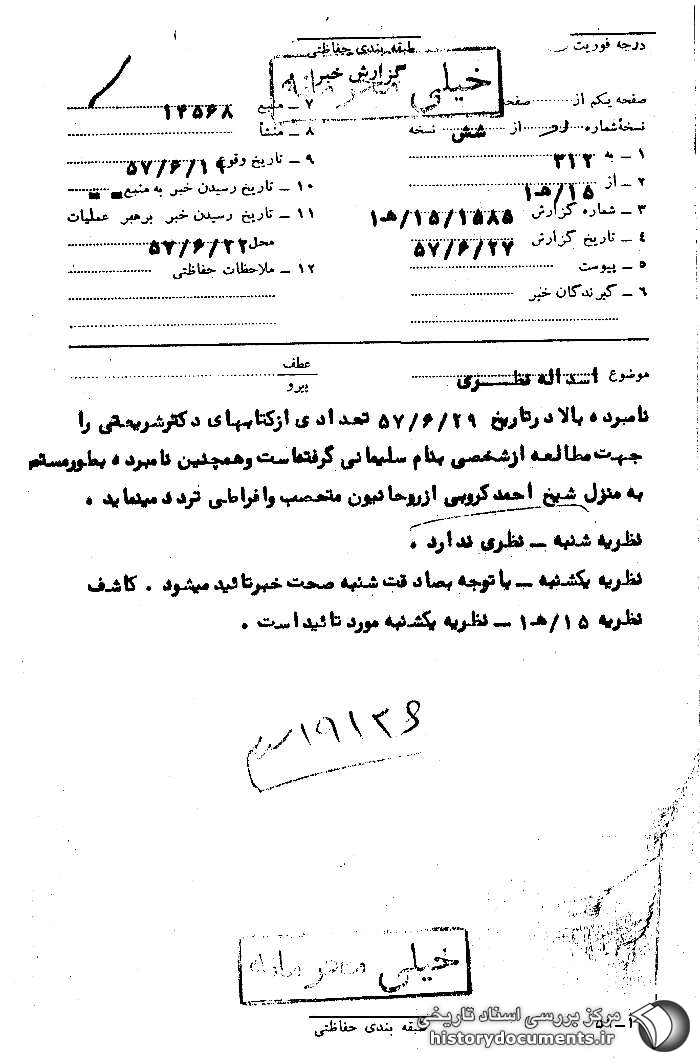 درجه فوریت
طبقه بندی حفاظتی
گزارش خبر
خیلی محرمانه
صفحه یکم از صفحه
نسخهٔ شماره از شش نسخه
۱ ــ به ۳۱۲
۲ ــ از ۱۵/هـ۱
۳ ــ شماره گزارش ۱۵۸۵/۱۵/هـ۱
۴ ــ تاریخ گزارش ۵۷/۶/۲۷
۵ ــ پیوست
۶ ــ گیرندگان خبر
۷ ــ منبع ۱۴۵۶۸
۸ ــ منشأ
۹ ــ تاریخ وقوع ۵۷/۶/۱۹
۱۰ ــ تاریخ رسیدن خبر به منبع
۱۱ ــ تاریخ رسیدن خبر برهبر عملیات
محل ۵۷/۶/۲۲
۱۲ ــ ملاحظات حفاظتی
موضوع اسداله نظری
عطف
پیرو
نامبرده بالا در تاریخ ۵۷/۶/۲۹ تعدادی از کتابهای دکتر شریعتی را
جهت مطالعه از شخصی بنام سلیمانی گرفته‌است وهمچنین نامبرده بطور مستمر
به منزل شیخ احمد کروبی از روحانیون متعصب وافراطی تردد مینماید .
نظریه شنبه ــ نظری ندارد .
نظریه یکشنبه ــ با توجه بصداقت شنبه صحت خبر تائید میشود . کاشف
نظریه ۱۵/هـ۱ ــ نظریه یکشنبه مورد تائید است .
خیلی محرمانه
طبقه بندی حفاظتی
مرکز بررسی اسناد تاریخی
historydocuments.ir